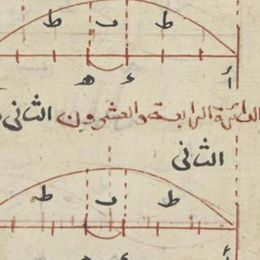 ط ب ط
أ ء ه
الدائرة الرابعة والعشرون الثانى
الثانى
ط ب ط
أ ء ه